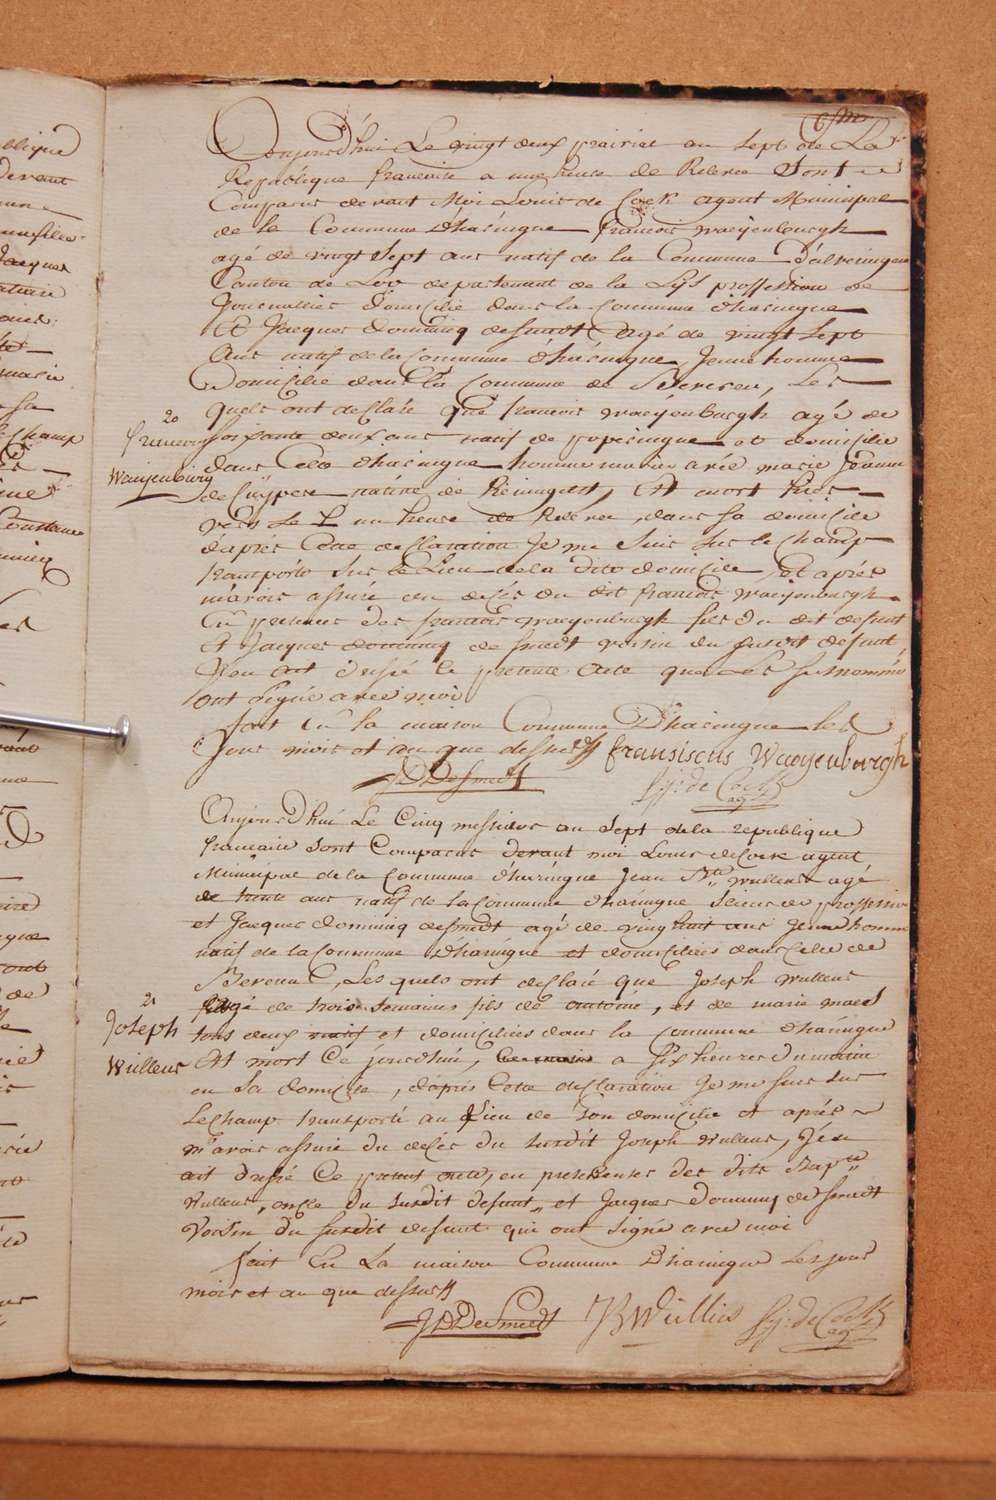 Aujourd'hui Le vingt deux prairial an sept de La
Republique francaise a une heure de Relevee Sont
Comparus devant Moi Louis de Cock agent Municipal
de la Commune d'haringue francois waeyenburgh
agé de vingt sept ans natif de la Commune d'alveringue
Canton de Loo departement de la Lijs proffession de
Journallier domicilié dans la Commune d'haringue
Et Jacques dominicq desmedt agé de vingt sept
Ans natif de la Commune d'haringue Jeune homme
Domicilié dans la Commune de Beveren, Les
quels ont declaré que francois waeyenburgh agé de
soixante deux ans natif de poperingue et domicilié
dans Celle d'haringue homme marié avée marie Jeanne
de Cuyper native de Reningelst, Est mort hier
vers Le une heure de Relevee, dans sa domicile
d'aprés Cette declaration Je me Suis sur le Champ
transporté sur le Lieu de la dite domicile, et aprés
m'avoir assuré du decés du dit francois waeyenburgh
En presence des francois waeyenburgh fils du dit defunt
Et Jacques dominicq de smedt voisin du susdit defunt
J'en ait dressé le present acte que les susnommés
ont signé avec moi
fait En la maison Commune D'haringue les
Jour mois et an que dessus fransiscus Waeyenborgh
JDDeSmedt Lij: de Cock
ag
20
francois
Waeijenburg
Aujourd'hui Le Cinq messidor an Sept de la republique
francaise sont Comparus devant moi Louis de Cock agent
Municipal de la Commune d'haringue Jean Bte wullens agé
de trente ans natif de la Commune d'haringue de proffession
et Jacques dominicq desmedt agé de vingt huit ans Jeune homme
natif de la Commune D'haringue et domiciliés dans Celle de
Beveren, Les quels ont declaré que Joseph wullens
agé de trois semaines fils de antoine, et de marie maes
tous deux natif et domiciliés dans la Commune d'haringue
Est mort Ce jourdhui, a six heures du matin
en sa domicile, d'aprés Cette declaration Je me suis sur
Le Champ transporté au Lieu de Son domicile et aprés
m'avoir assuré du decés du susdit Joseph wullens, J'en
ait dressé Ce present acte, en presenses des dits Bapte
wullens, oncle du susdit defunt, et Jacques dominicq de smedt
voisin du susdit defunt qui ont signé avec moi
fait En La maison Commune D'haringue les jour
mois et an que dessus
JDDeSmedt JBWullins Lij: de Cock
ag
21
Joseph
Wullens